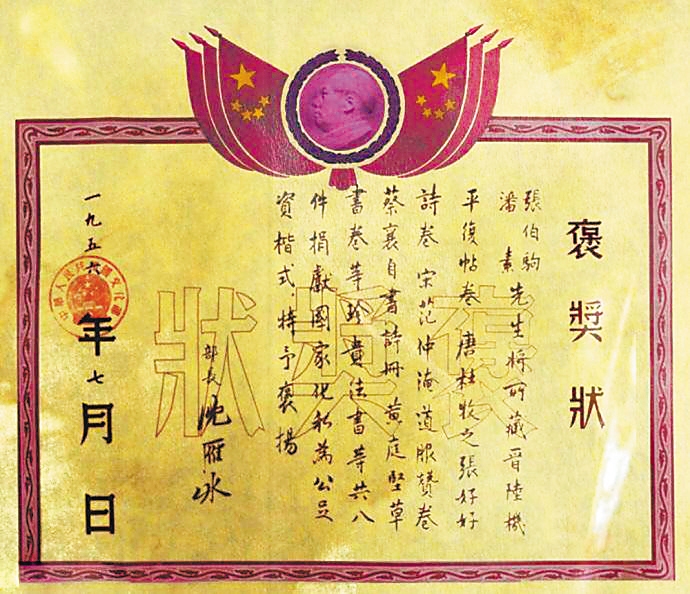 褒獎狀
張伯駒
潘素
先生將所藏晉陸機
平復帖卷唐杜牧之張好好
詩卷宋范仲淹道服贊卷
蔡襄自書詩冊黃庭堅草
書卷等珍貴法書等共八
件捐獻國家化私為公足
資楷式，特予褒揚
部長沈雁冰
一九五六年七月日
褒獎狀
中華人民共和國文化部